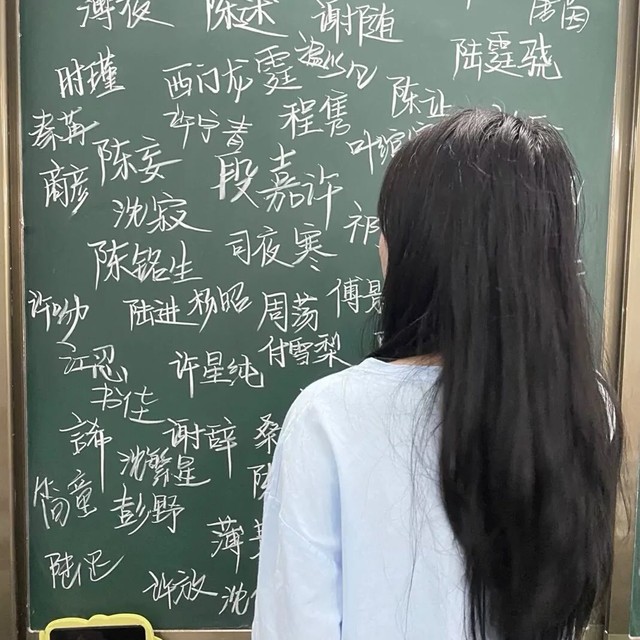 薄夜 陈述 谢随 唐因
时瑾 西门龙霆 温以凡 陆霆骁
秦苒 许宁青 程隽 陈让
商彦 陈妄 段嘉许 叶缤
沈寂 司夜寒 祁
陈铭生
许呦 陆进 杨昭 周荡 傅景
江忍 许星纯 付雪梨
书佳
言希 谢辞 桑
沈繁星 陈
简童 彭野
薄
陆迟 许放 沈